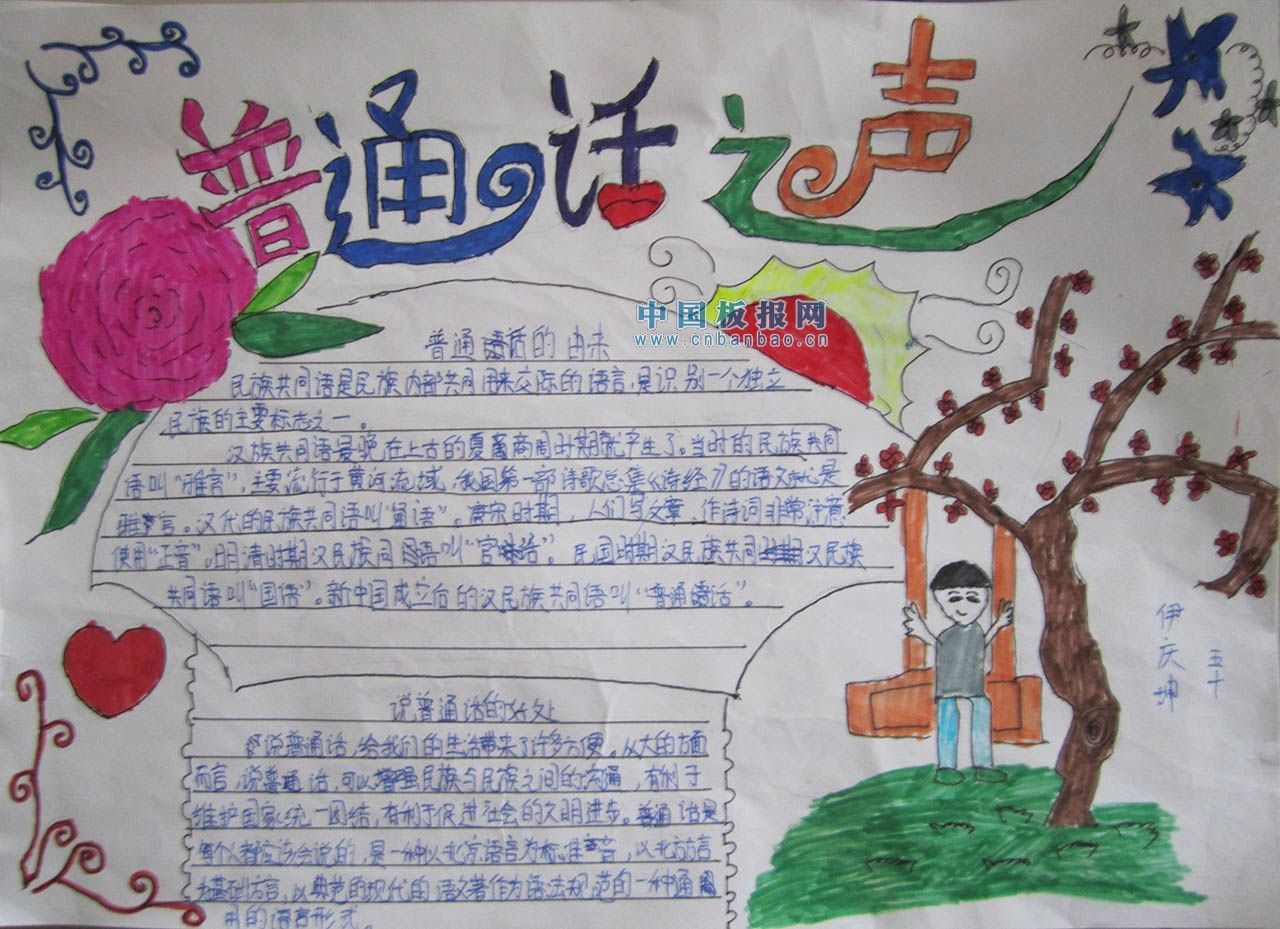 普通话之声
中国板报网
www.cnbanbao.cn
普通话的由来
民族共同语是民族内部共同用来交际的语言,是识别一个独立
民族的主要标志之一。
汉族共同语最晚在上古的夏商周时期就产生了。当时的民族共同
语叫“雅言”,主要流行于黄河流域,我国第一部诗歌总集《诗经》的语言就是
雅言。汉代的民族共同语叫“通语”。唐宋时期,人们写文章、作诗词非常注意
使用“正音”。明清时期汉民族同语叫“官话”。民国时期汉民族共同汉民族
共同语叫“国语”。新中国成立后的汉民族共同语叫“普通话”。
说普通话的好处
说普通话,给我们的生活带来了许多方便。从大的方面
而言,说普通话,可以增强民族与民族之间的沟通,有利于
维护国家统一团结,有利于促进社会的文明进步。普通话是
每个人都应该会说的,是一种以北京语言为标准音,以北方方言
为基础方言,以典范的现代的语文著作为语法规范的一种通
用的语言形式。
伊庆坤
五十